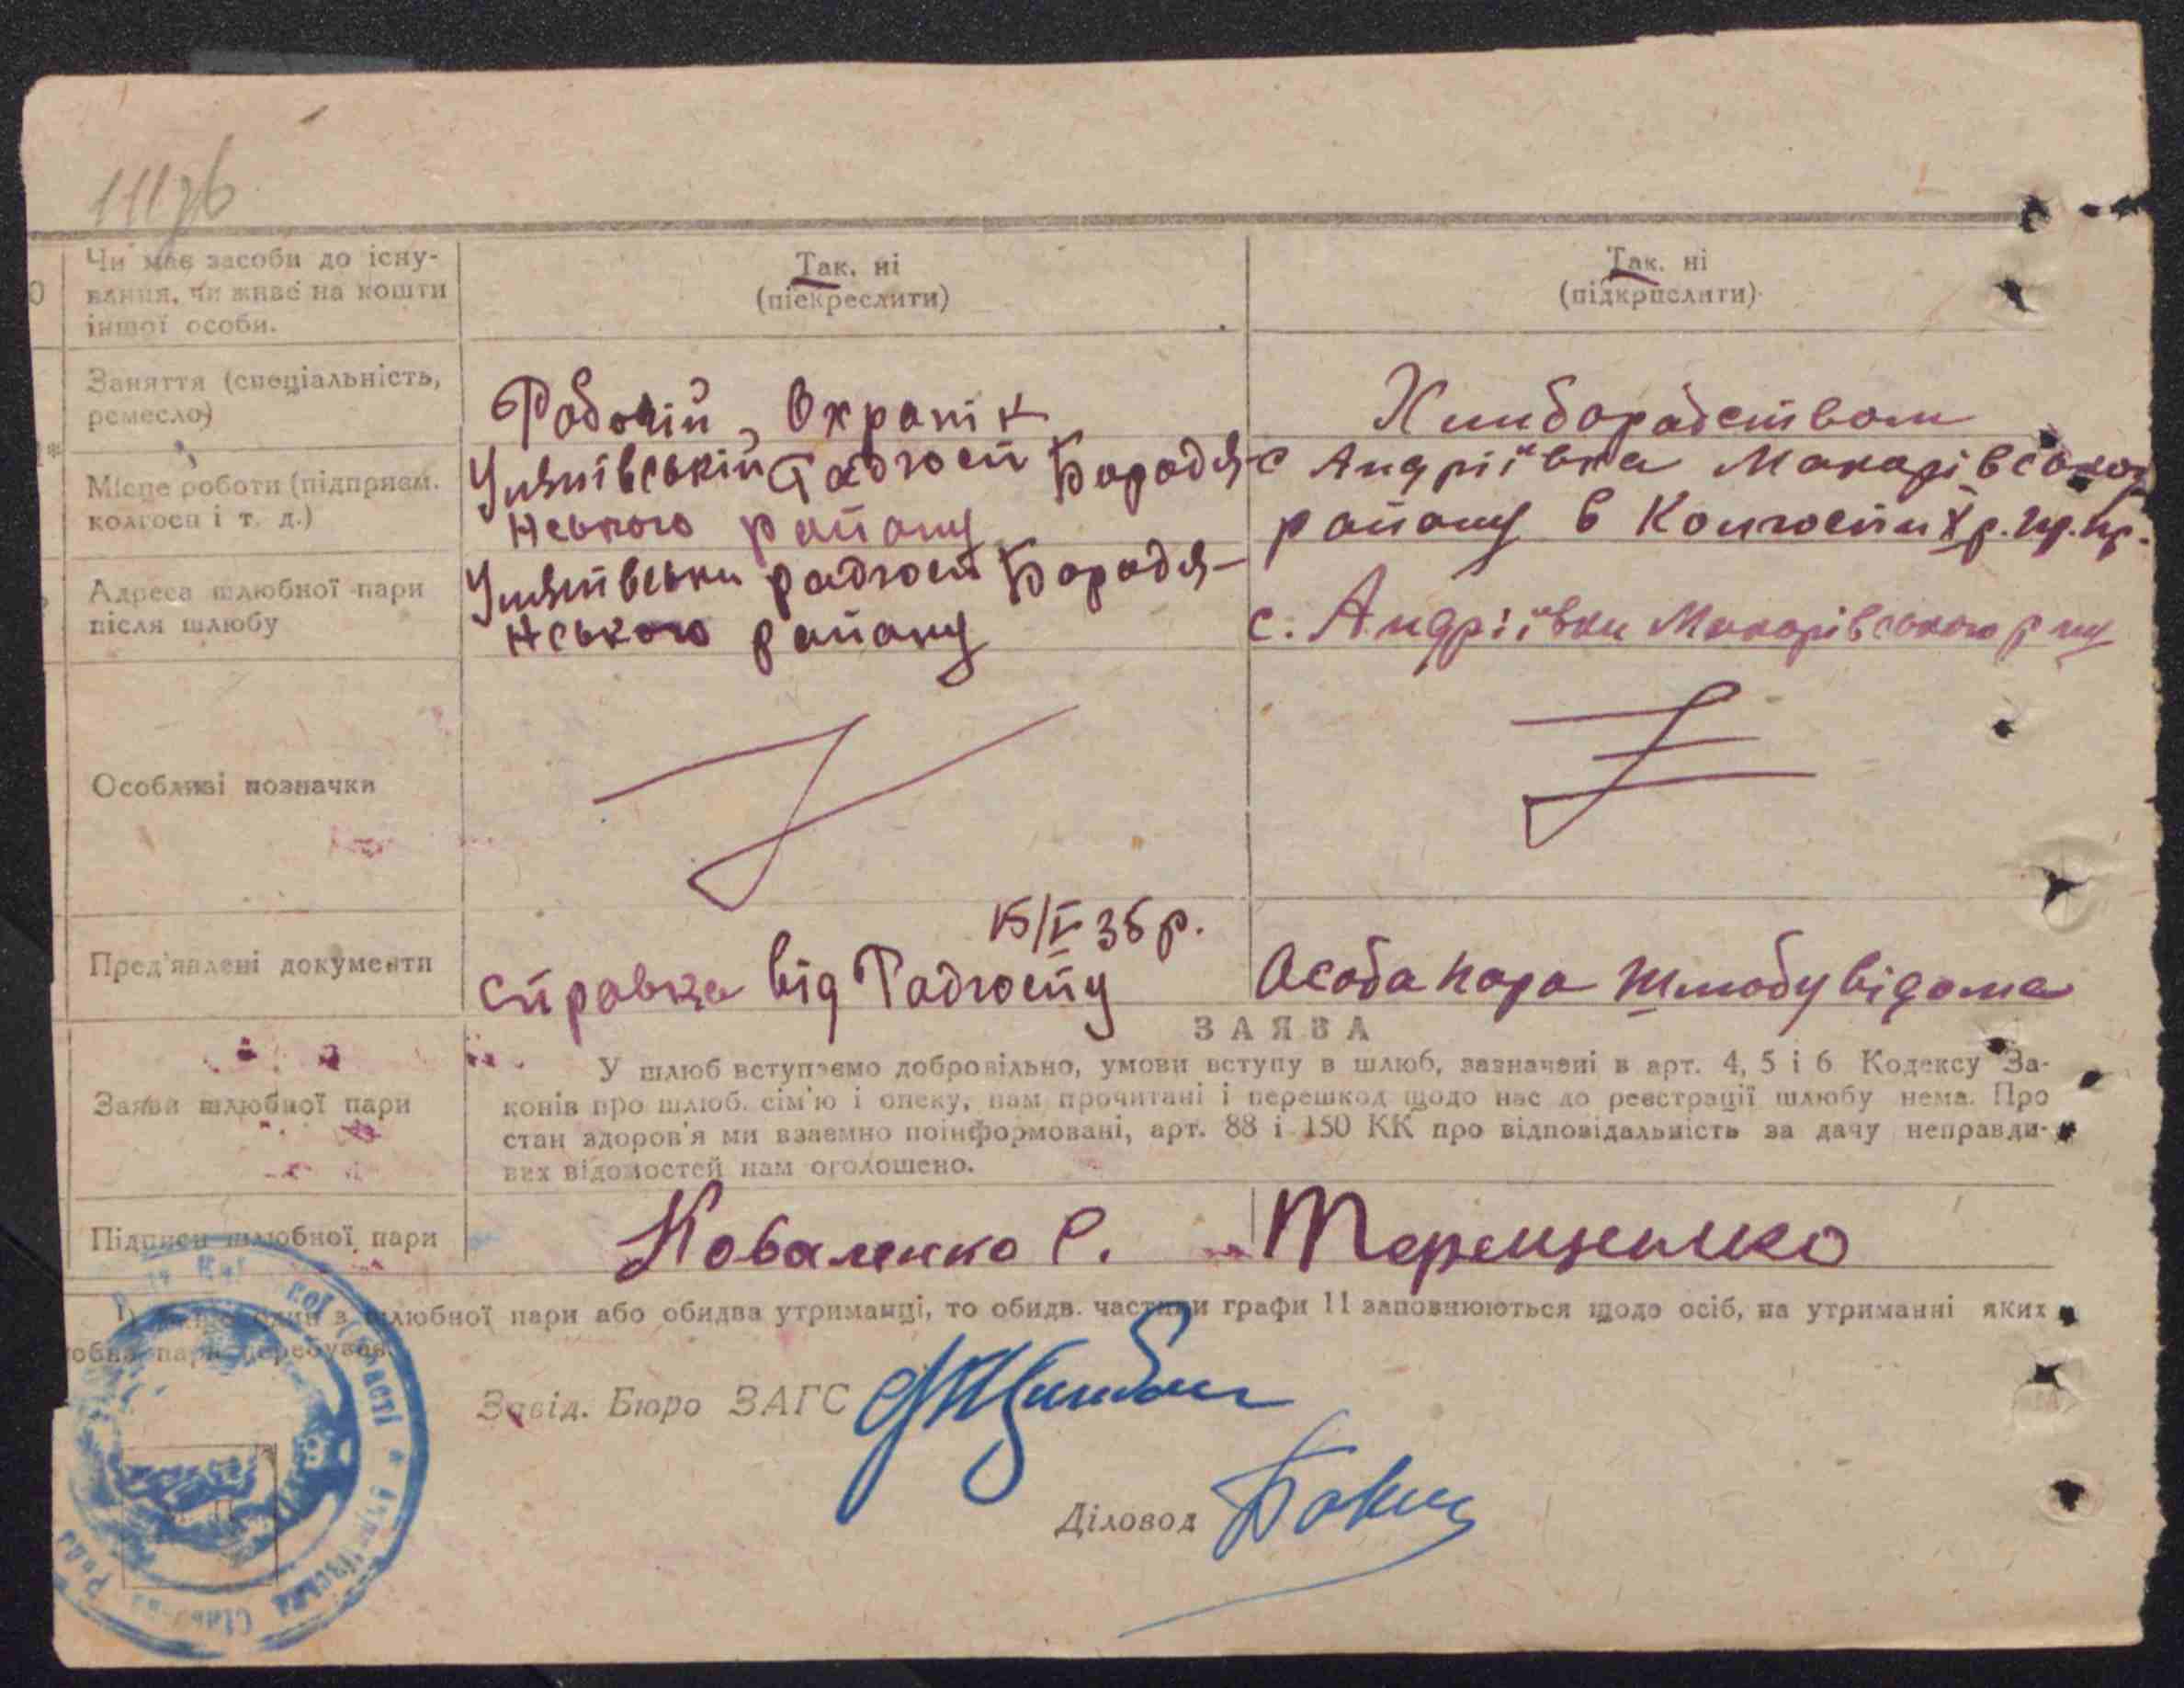 111зв
Чи має засоби до існу-
вання, чи живе на кошти
іншої особи.
Так, ні
(піскреслити)
Так, ні
(підкрпслити)
Заняття (спеціальність,
ремесло)
Робочій, Охранік
Хлиборабством
Місце роботи (підприєм.
колгосп і т. д.)
Радгосп Бородя-
нського району
с Андріївка Макарівського
району в Колгоспи
Адреса шлюбної пари
після шлюбу
радгосп Бородя-
нського району
с. Андріївки Макарівського р ну
Особливі позначки
Пред'явлені документи
15/V 36 р.
справка від Радгоспу
Особа пара шлюбу відома
ЗАЯВА
Заяви шлюбної пари
У шлюб вступаємо добровільно, умови вступу в шлюб, зазначені в арт. 4, 5 і 6 Кодексу За-
конів про шлюб, сім'ю і опеку, нам прочитані і перешкод щодо нас до реєстрації шлюбу нема. Про
стан здоров'я ми взаємно поінформовані, арт. 88 і 150 КК про відповідальність за дачу неправди-
вих відомостей нам оголошено.
Підписи шлюбної пари
Коваленко С. Терещенко
з шлюбної пари або обидва утриманці, то обидв. частини графи 11 заповнюються щодо осіб, на утриманні яких
пара перебуває
Завід. Бюро ЗАГС
Діловод